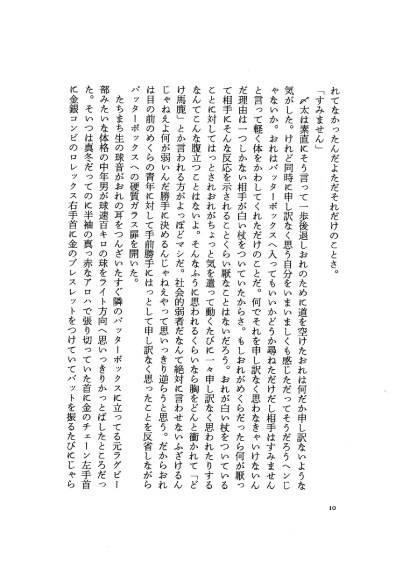 れてなかったんだよただそれだけのことさ。
「すみません」
〆太は素直にそう言って一歩後退しおれのために道を空けたおれは何だか申し訳ないような
気がした。けれど同時に申し訳なく思う自分をいまいましくも感じただってそうだろうヘンじ
ゃないか。おれはバッターボックスへ入ってもいいかどうか尋ねただけだし相手はすみません
と言って軽く体をかわしてくれただけのことだ。何でそれを申し訳なく思わなきゃいけないん
だ理由は一つしかない相手が白い杖をついていたからさ。もしおれがめくらだったら何が厭っ
て相手にそんな反応を示されることくらい厭なことはないだろう。おれが白い杖をついている
ことに対してはっとされおれがちょっと気を遣って動くたびに一々申し訳なく思われたりする
なんてこんな腹立つことはないよ。そんなふうに思われるくらいなら胸をどんと衝かれて「ど
け馬鹿」とか言われる方がよっぽどマシだ。社会的弱者だなんて絶対に言わせないふざけるん
じゃねえよ何が弱いんだ勝手に決めるんじゃねえやって思いっきり逆らうと思う。だからおれ
は目の前のめくらの青年に対して手前勝手にはっとして申し訳なく思ったことを反省しながら
バッターボックスへの硬質ガラス扉を開いた。
たちまち生の球音がおれの耳をつんざいたすぐ隣のバッターボックスに立ってる元ラグビー
部みたいな体格の中年男が球速百キロの球をライト方向へ思いっきりかっとばしたところだっ
た。そいつは真冬だってのに半袖の真っ赤なアロハで張り切っていた首に金のチェーン左手首
に金銀コンビのロレックス右手首に金のブレスレットをつけていてバットを振るたびにじゃら
10